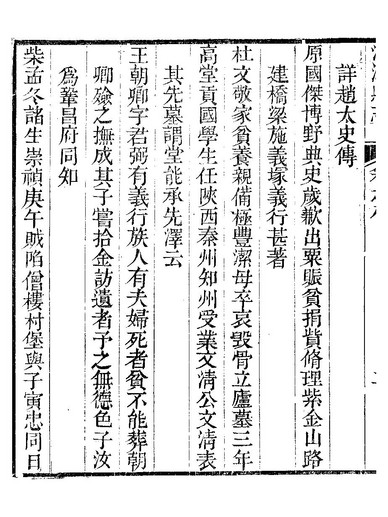 詳趙太史傳
原國傑博野典史歲歉出粟賑貧捐貲脩理紫金山路
建橋梁施義塚義行甚著
杜文敬家貧養親備極豐潔母卒哀毀骨立廬墓三年
高堂貢國學生任陝西秦州知州受業文清公文清表
其先墓謂堂能承先澤云
王朝卿字君弼有義行族人有夫婦死者貧不能葬朝
卿殮之撫成其子嘗拾金訪遺者予之無德色子汝
為鞏昌府同知
柴孟冬諸生崇禎庚午賊陷僧樓村堡與子寅忠同日